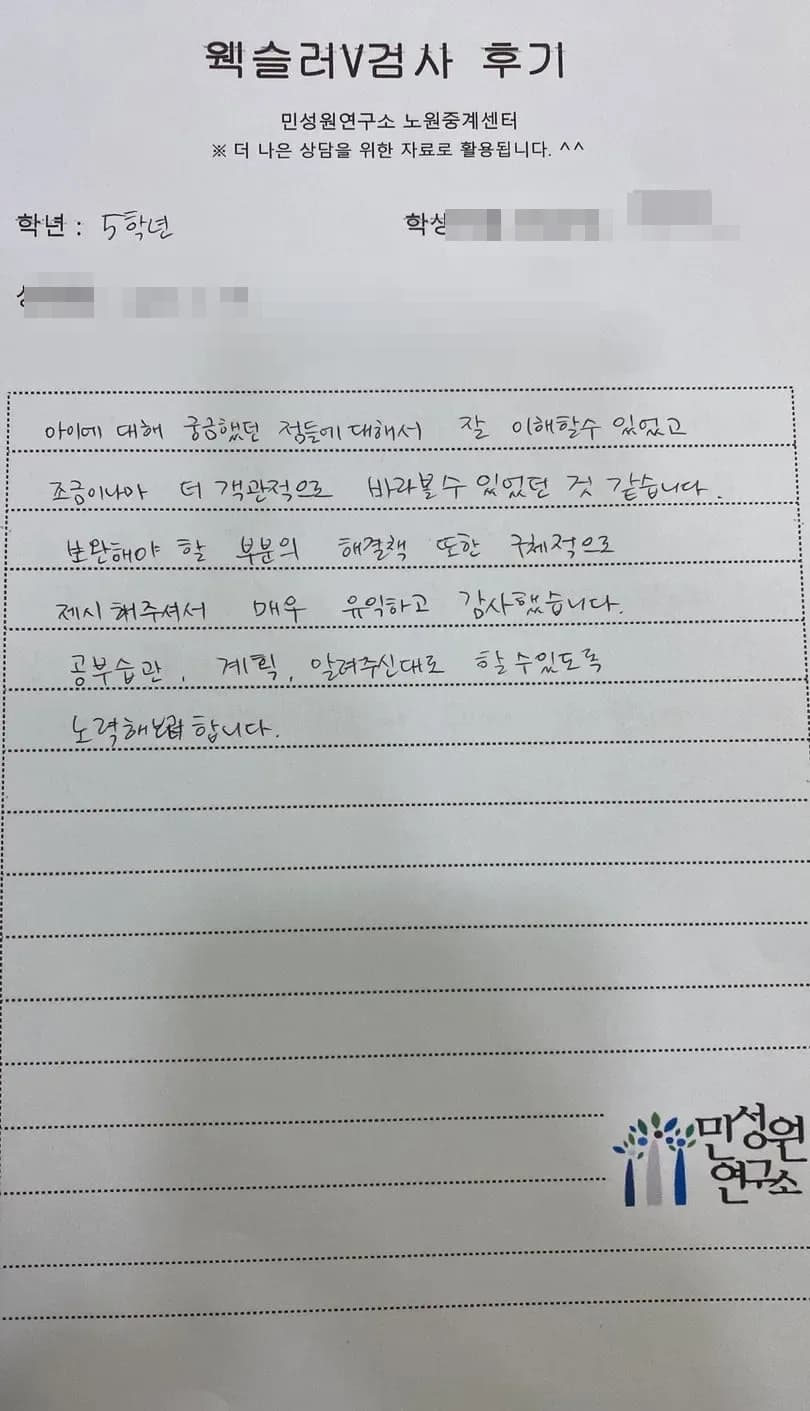 웩슬러V검사 후기
민성원연구소 노원중계센터
※ 더 나은 상담을 위한 자료로 활용됩니다. ^^
학년 : 5학년
아이에 대해 궁금했던 점들에 대해서 잘 이해할수 있었고
조금이나마 더 객관적으로 바라볼수 있었던 것 같습니다.
보완해야 할 부분의 해결책 또한 구체적으로
제시 해주셔서 매우 유익하고 감사했습니다.
공부습관, 계획, 알려주신대로 할수있도록
합니다.
민성원
연구소